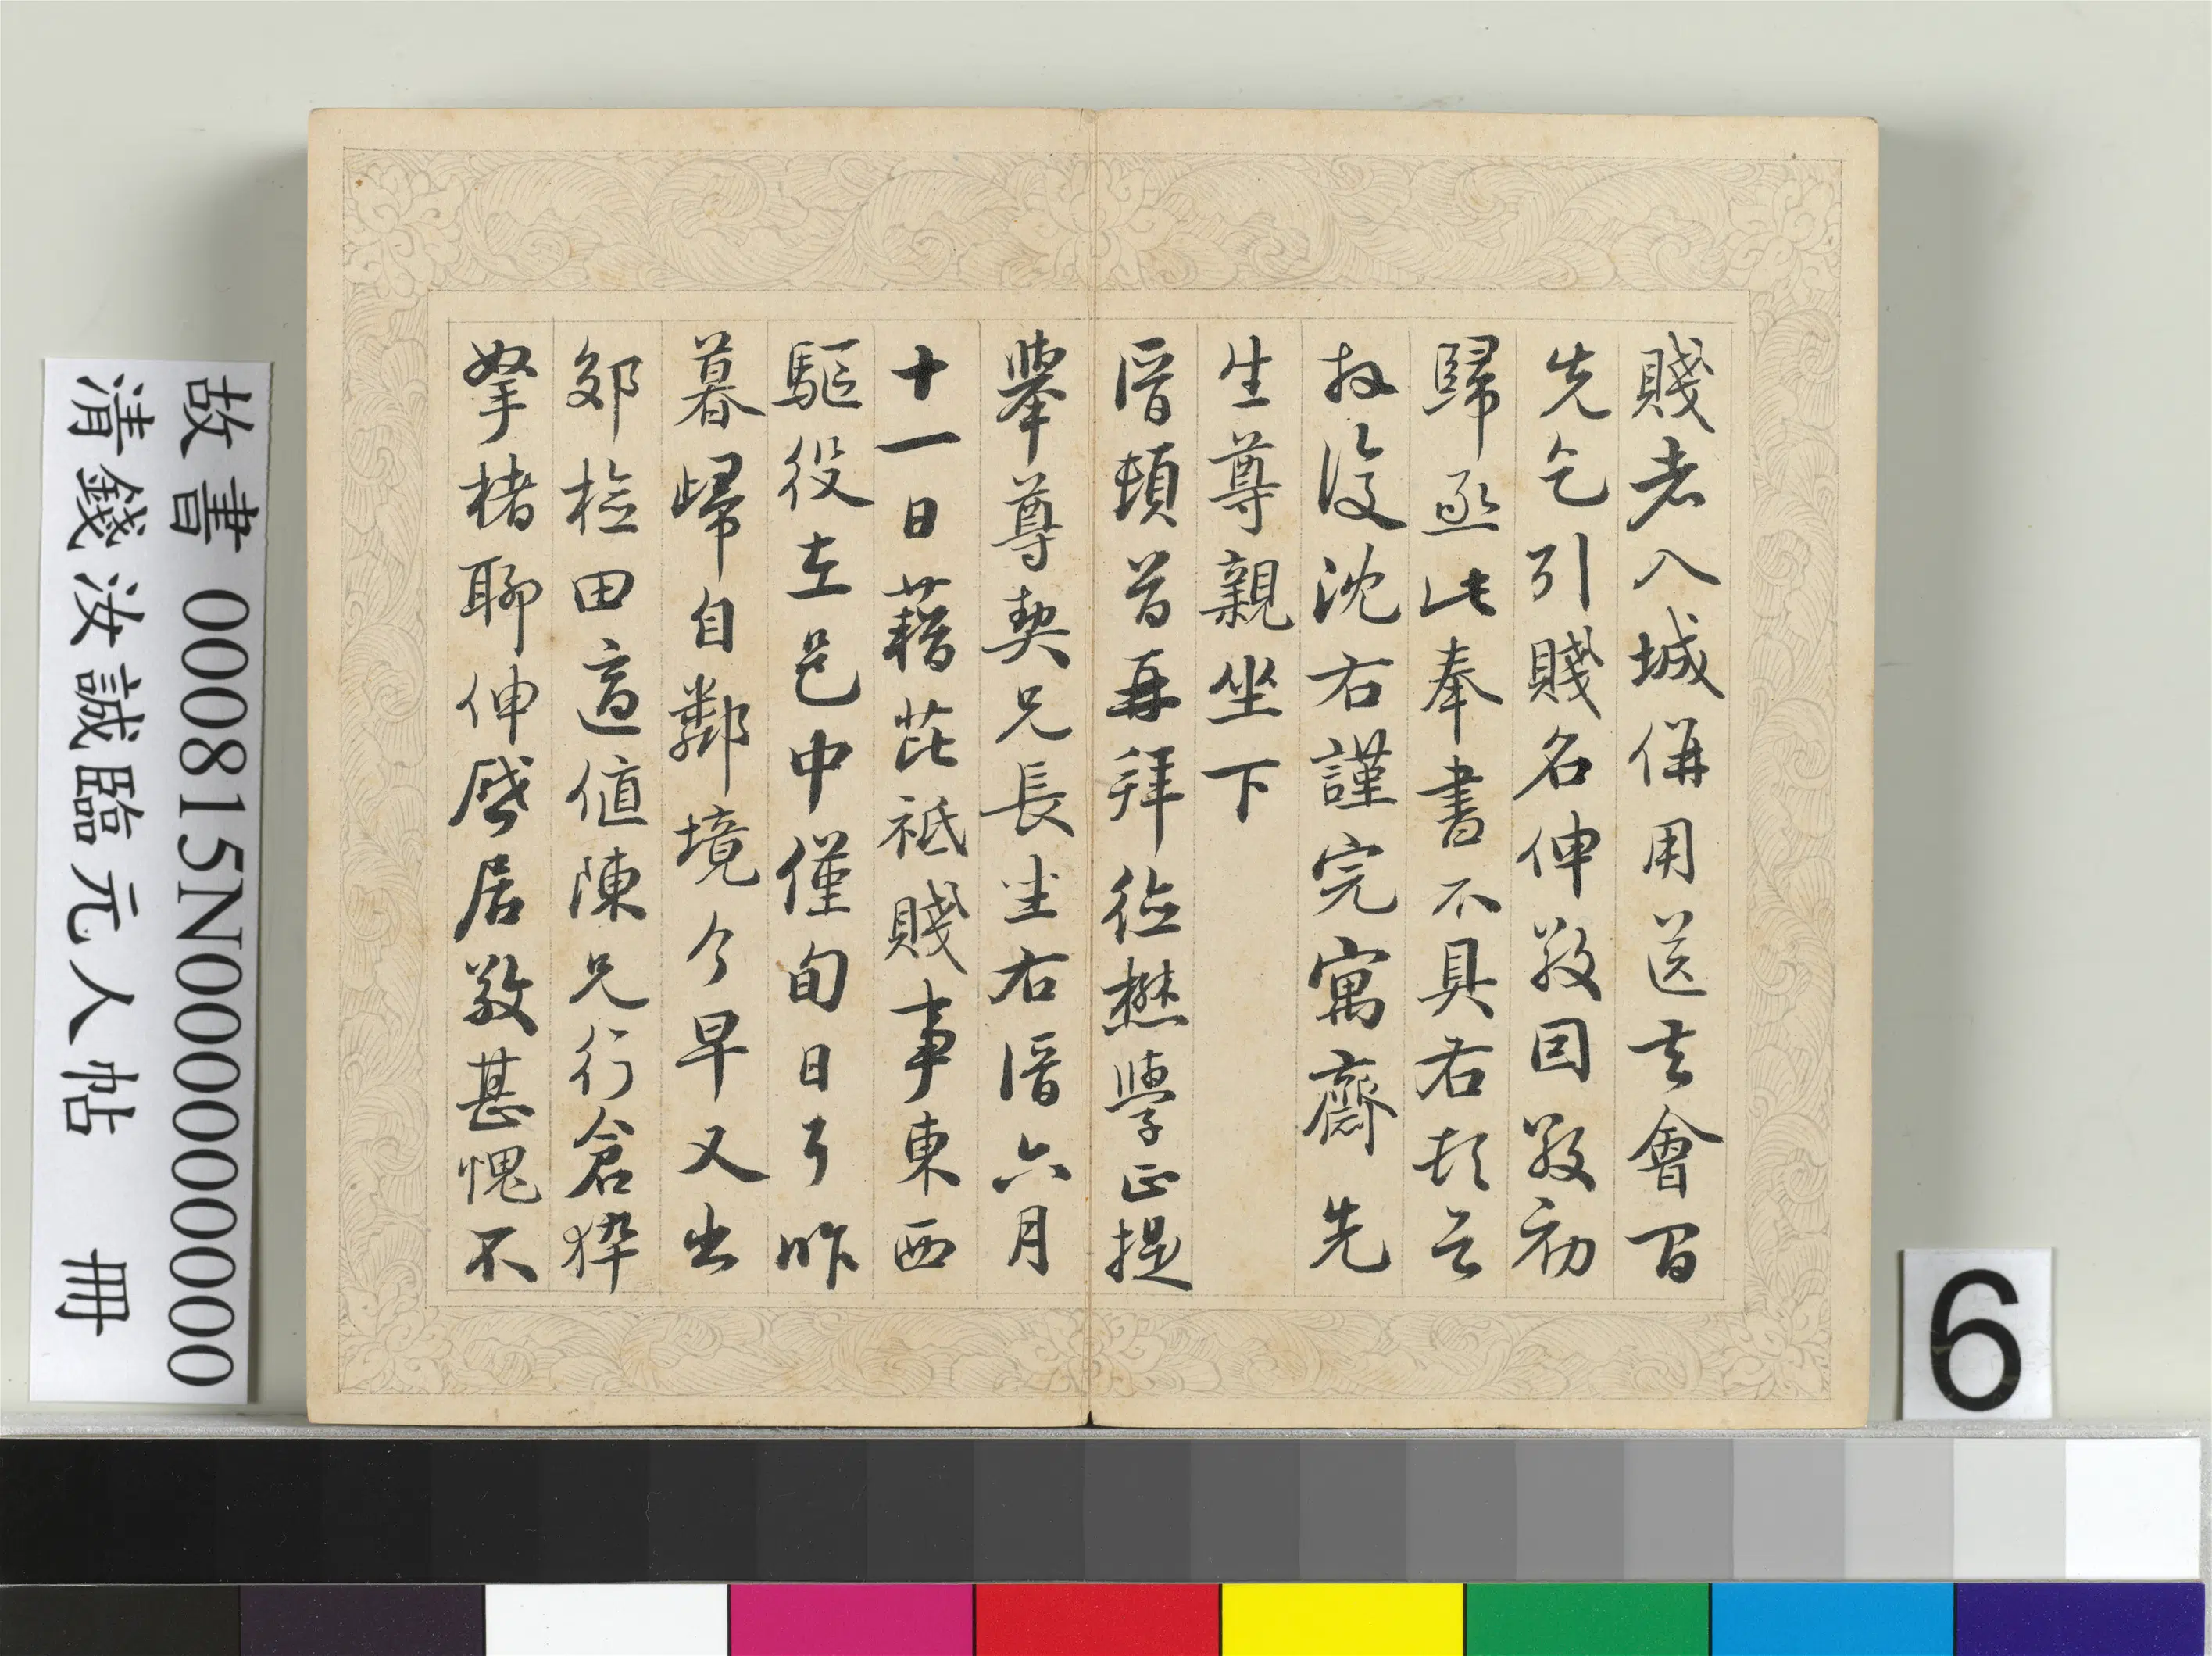 賤者入城併用送去會間
先乞引賤名伸致回致初
歸亟此奉書不具右
沈右謹完寓齋先
生尊親坐下
厝頓首再拜德懋學正提
舉尊契兄長坐右厝六月
十一日藉芘祗賤事東西
驅役在邑中僅旬日了昨
暮歸自鄰境今早又出
郊檢田適值陳兄行倉猝
拏楮聊伸啓居敬甚愧不
故書000815N000000000
清錢汝誠臨元人帖 冊
6